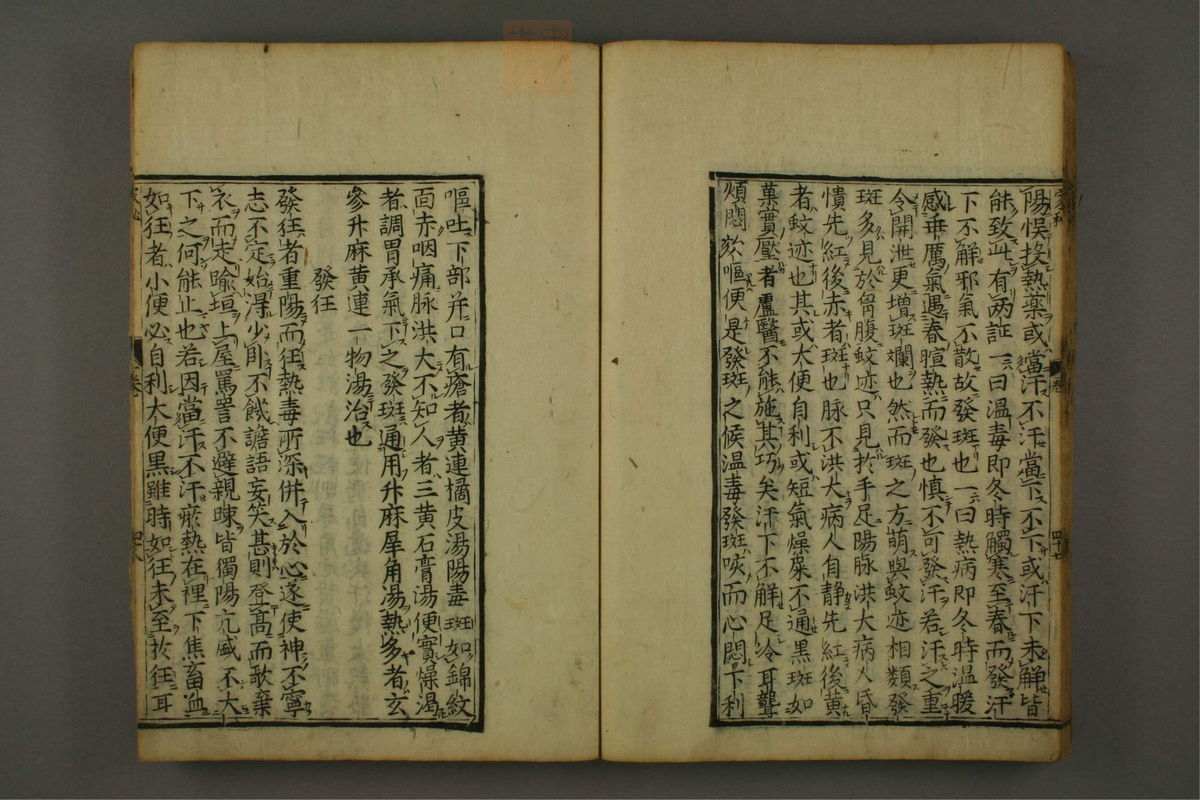 陽悞投熱藥或當汗不汗當下不下或汗下未解皆
能致此有两証一曰温毒即冬時觸寒至春而發汗
下不解邪氣不散故發斑也一曰熱病即冬時温暖
感乖厲氣遇春暄熱而發也慎不可發汗若汗之重
令開泄更增斑斕也然而斑之方萌與蚊迹相類發
斑多見於胷腹蚊迹只見於手足陽脉洪大病人昏
憒先紅後赤者斑也脉不洪大病人自静先紅後黄
者蚊迹也其或大便自利或短氣燥屎不通黒斑如
菓實壓者盧醫不能施其巧矣汗下不解足冷耳聾
煩悶欬嘔便是發斑之候温毒發斑咳而心悶下利
四十七
嘔吐下部并口有瘡者黄連橘皮湯陽毒斑如錦紋
面赤咽痛脉洪大不知人者三黄石膏湯便實燥渴
者調胃承氣下之發斑通用升麻犀角湯熱多者玄
參升麻黄連一物湯治也
發狂
發狂者重陽而狂熱毒所深併入於心遂使神不寧
志不定始淂少卧不饑譫語妄笑甚則登髙而歌棄
衣而走踰垣上屋罵詈不避親踈皆獨陽亢盛不大
下之何能止也若因當汗不汗瘀熱在裡下焦畜血
如狂者小便必自利大便黒雖時如狂未至於狂耳
四十八